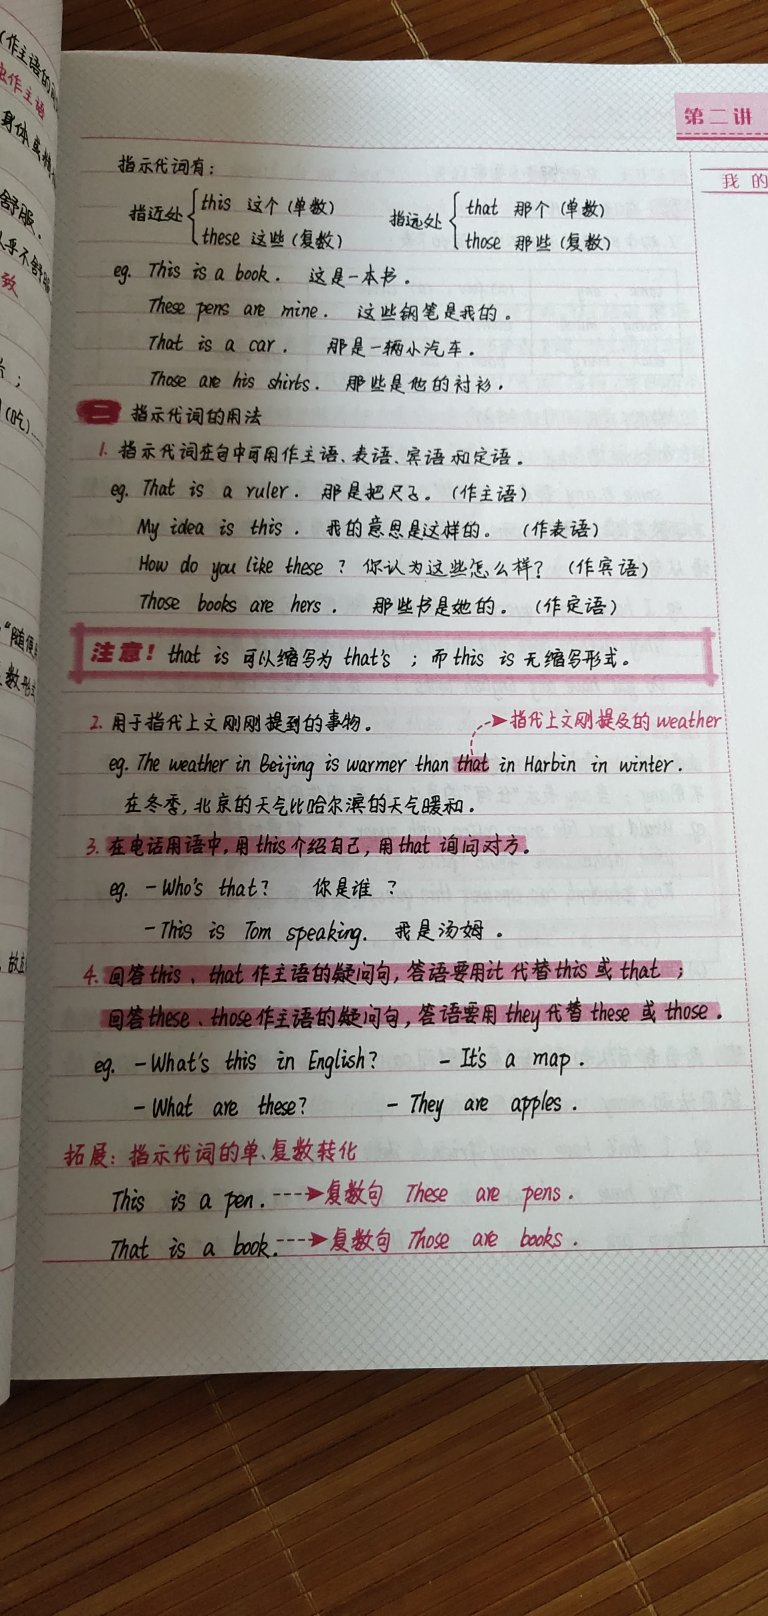 第二讲
我的
指示代词有：
指近处 this 这个（单数） 指远处 that 那个（单数）
these 这些（复数） those 那些（复数）
eg. This is a book. 这是一本书。
These pens are mine. 这些钢笔是我的。
That is a car. 那是一辆小汽车。
Those are his shirts. 那些是他的衬衫。
二 指示代词的用法
1. 指示代词在句中可用作主语、表语、宾语和定语。
eg. That is a ruler. 那是把尺子。（作主语）
My idea is this. 我的意思是这样的。（作表语）
How do you like these? 你认为这些怎么样？（作宾语）
Those books are hers. 那些书是她的。（作定语）
注意！that is 可以缩写为 that's；而 this is 无缩写形式。
2. 用于指代上文刚刚提到的事物。 指代上文刚提及的 weather
eg. The weather in Beijing is warmer than that in Harbin in winter.
在冬季，北京的天气比哈尔滨的天气暖和。
3. 在电话用语中，用 this 介绍自己，用 that 询问对方。
eg. - Who's that? 你是谁？
- This is Tom speaking. 我是汤姆。
4. 回答 this、that 作主语的疑问句，答语要用it 代替 this 或 that；
回答 these、those 作主语的疑问句，答语要用 they 代替 these 或 those。
eg. - What's this in English? - It's a map.
- What are these? - They are apples.
拓展：指示代词的单、复数转化
This is a pen. 复数句 These are pens.
That is a book. 复数句 Those are books.
（作主语的
作主语
身体或精
舒服.
乎不舒服
致
；
（吃）
"随便
数形式